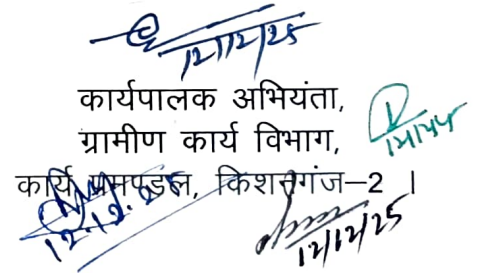 12/12/25
कार्यपालक अभियंता,
ग्रामीण कार्य विभाग,
कार्य प्रमण्डल, किशनगंज–2 |
12.12.25
12/12/25